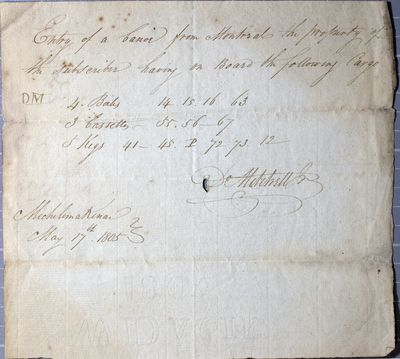 Entry of a Canoe from Montreal the property of
the Subscriber having on Board the following Cargo
DM
4 Bales 14 15 16 63
3 Cassettes 55. 56 - 67
5 Kegs 41 - 45. P 72 73. 12
D Mitchell Jr
Michilimakinac
May 17th 1805